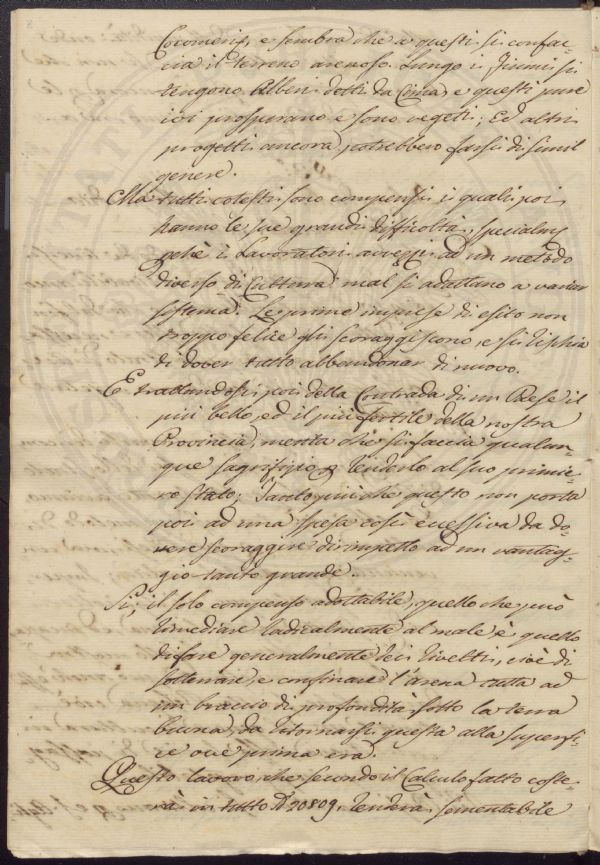 Cocomeri, e sembra che a questi si confac-
cia il terreno arenoso. Lungo i fiumi si
tengono Alberi detti da Cima, e questi pure
ivi prosperano e sono vegeti; Ed altri
progetti ancora potrebbero farsi di simil
genere.
Ma tutti cotesti sono compensi i quali poi
hanno le sue grandi difficoltà,
perchè i Lavoratori avvezzi ad un metodo
diverso di Cultura mal si adattano a variar
sistema. Le prime imprese di esito non
troppo felice gli scoraggiscono, e si rischia
di dover tutto abbandonar di nuovo.
E trattandosi poi della Contrada di un Paese il
più bello, ed il più fertile della nostra
Provincia, merita che si faccia qualun-
que sagrifizio p renderlo al suo primie-
ro stato; Tanto più che questo non porta
poi ad una spesa così eccessiva da do-
vere scoraggire di rimpetto ad un vantag-
gio tanto grande.
Si; il solo compenso adottabile, quello che può
rimediare radicalmente al male è quello
di fare generalmente dei rivelti, cioè di
sotterrare, e confinare l'arena tutta ad
un braccio di profondità sotto la terra
buona, da ritornarsi questa alla superfi-
cie ove prima era.
Questo lavoro, che secondo il Calcolo fatto coste-
rà in tutto 20809, renderà sementabile